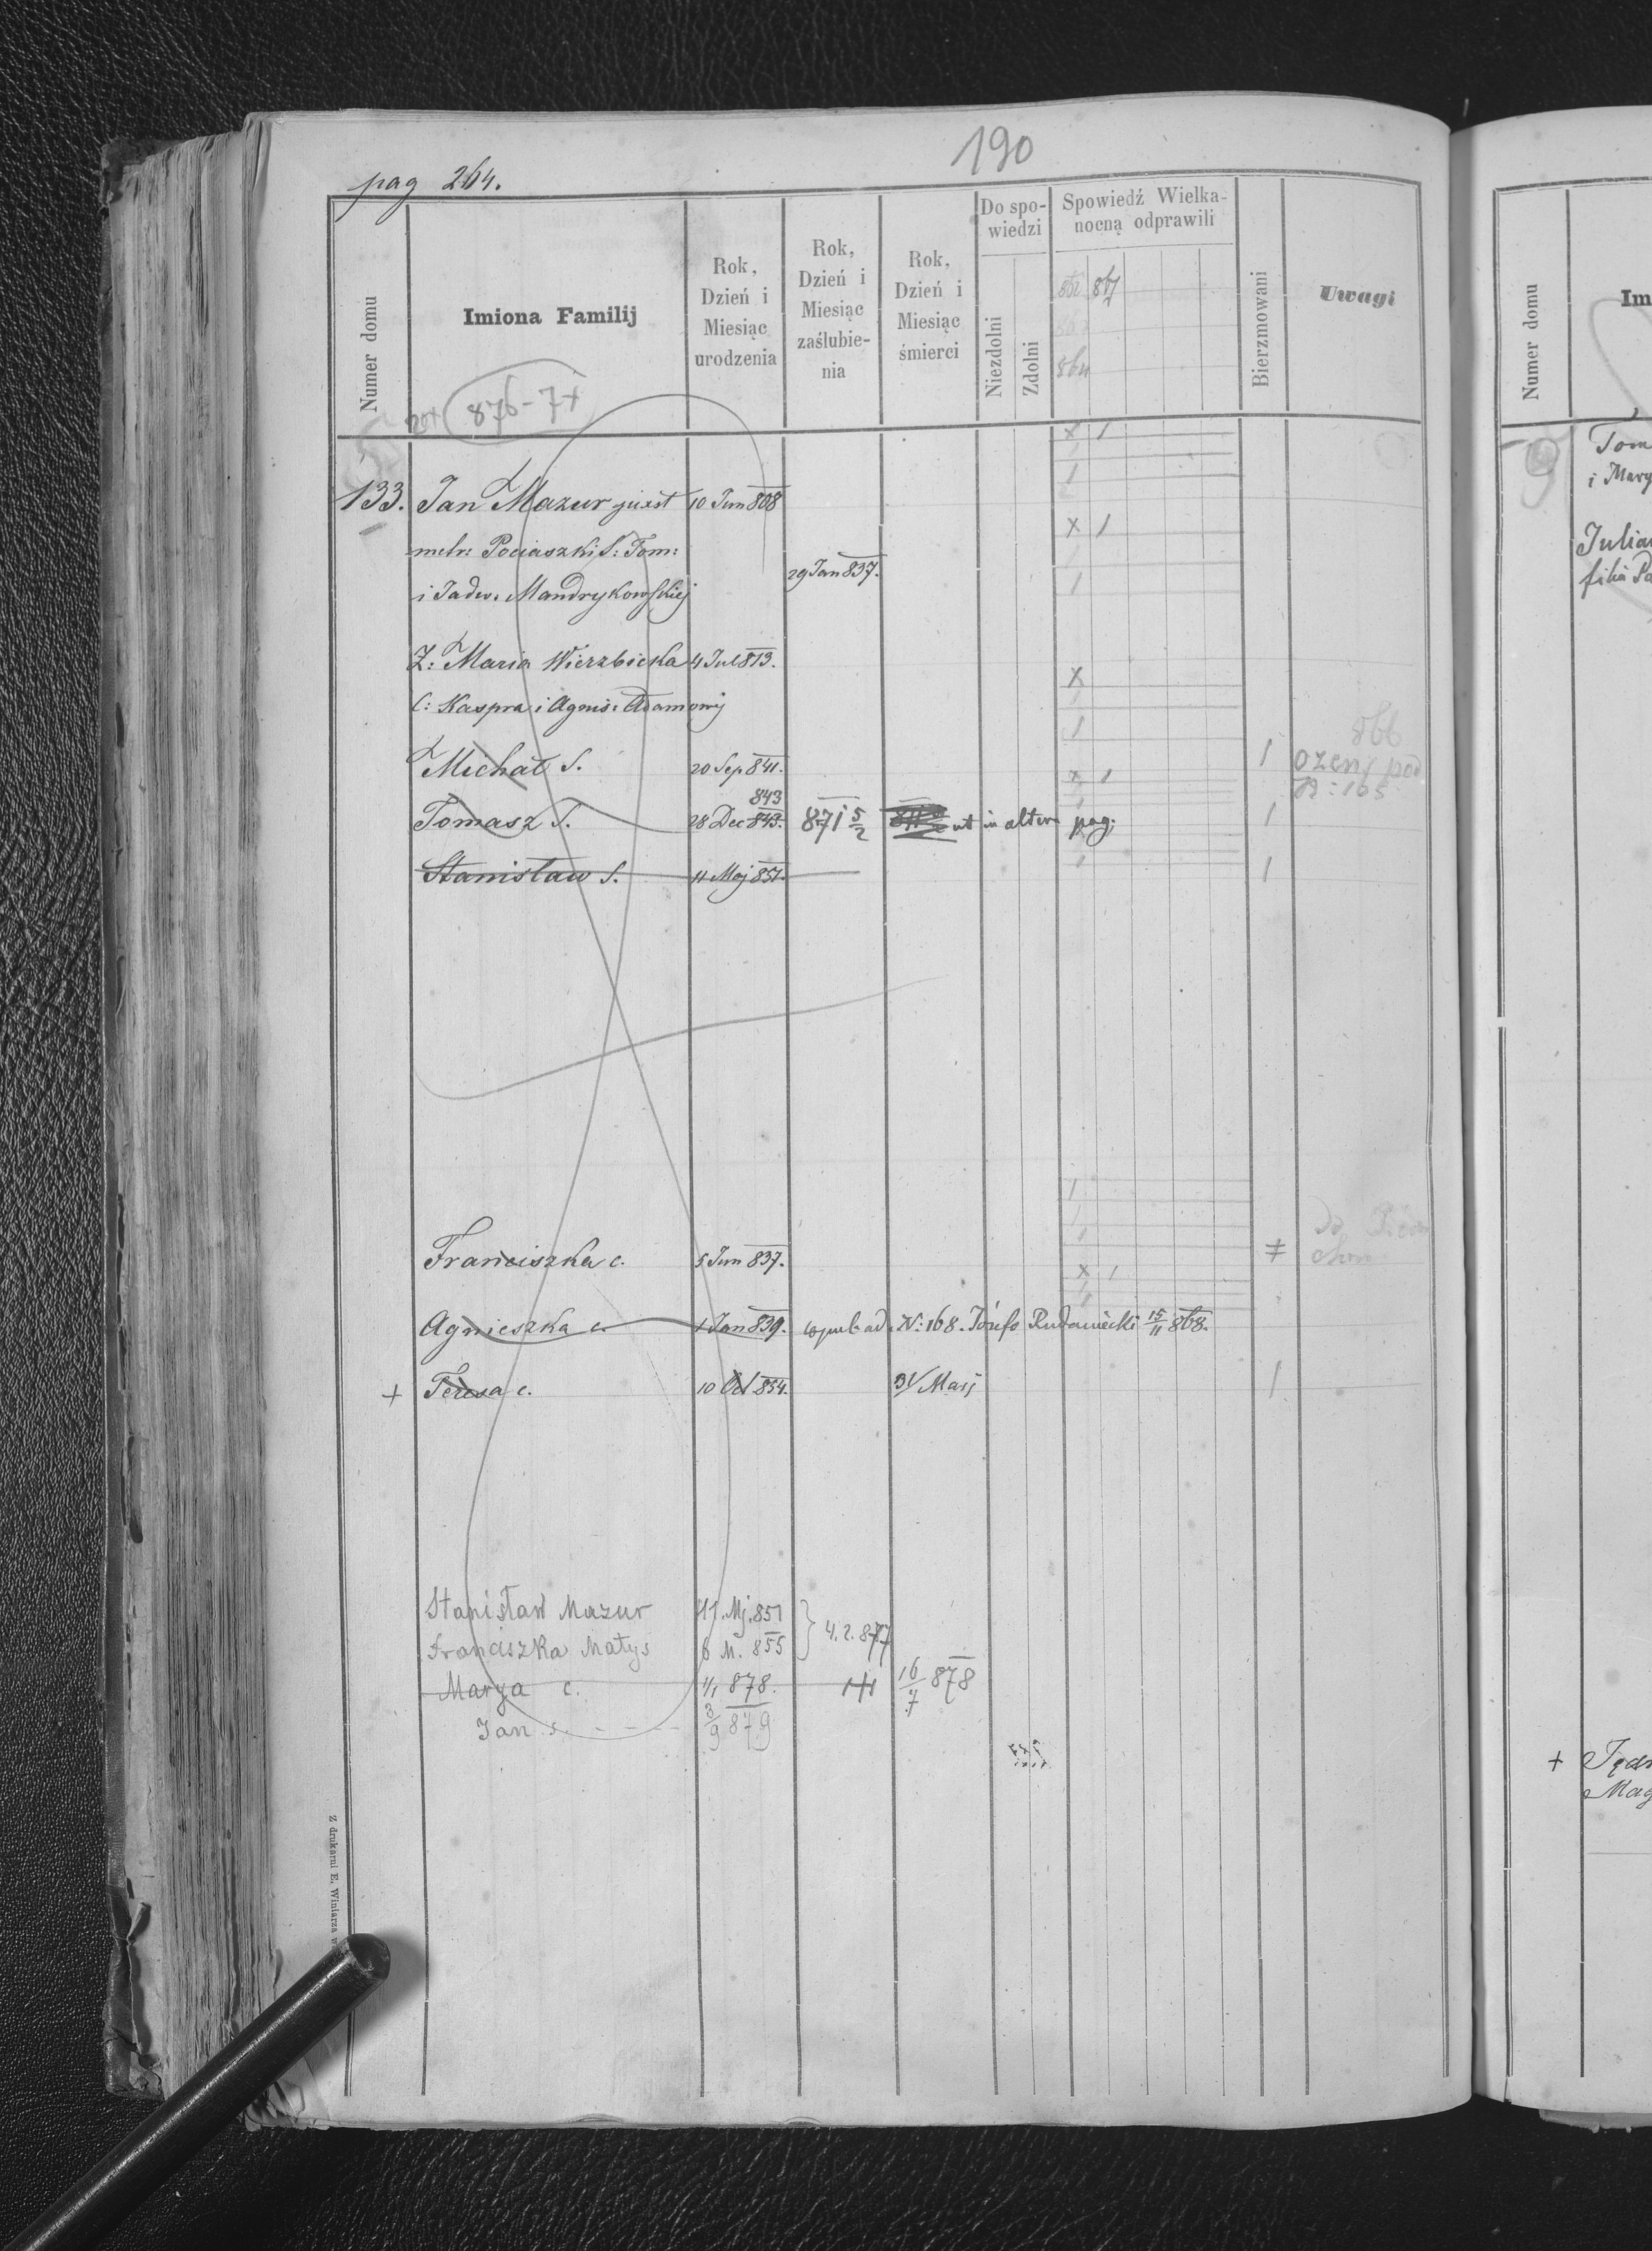 190
pag 264.
Numer domu
Imiona Familij
Rok, Dzień i Miesiąc urodzenia
Rok, Dzień i Miesiąc zaślubie-nia
Rok, Dzień i Miesiąc śmierci
Do spo-wiedzi
Niezdolni
Zdolni
Spowiedź Wielka-nocną odprawili
Bierzmowani
Uwagi
867
864
876-7x
133. Jan Mazur juxt 10 Jun 808
metr: Pociaszki S: Tom:
i Jadw. Mandrykowskiej 29 Jan 837.
Ż: Maria Wierzbicka 4 Jul 813.
C: Kaspra i Agnis: Adamowij
866
Michał S. 20 Sep 841. 1 ożeni pod
N: 165
843
Tomasz S. 28 Dec 843. 871 5/2 ut in altera pag: 1
Stanisław S. 11 Maj 851. 1
Franciszka c. 5 Jun 837.
Agnieszka c. 1 Jan 839. ad N: 168. Józefo Rudawiecki 15/11 868.
+ Teresa c. 10 Oct 854. 31 Maij 1
Stanisław Mazur 11. Mj. 851
Franciszka Małys 6 M. 855 } 4. 2. 877
Marya c. 1/1 878. 16/7 878
Jan s. - - - 3/9 879
Z drukarni E. Winiarza
Numer domu
Im
Tom
i Mary
Julia
filia Pa
+ Jędr
Mag